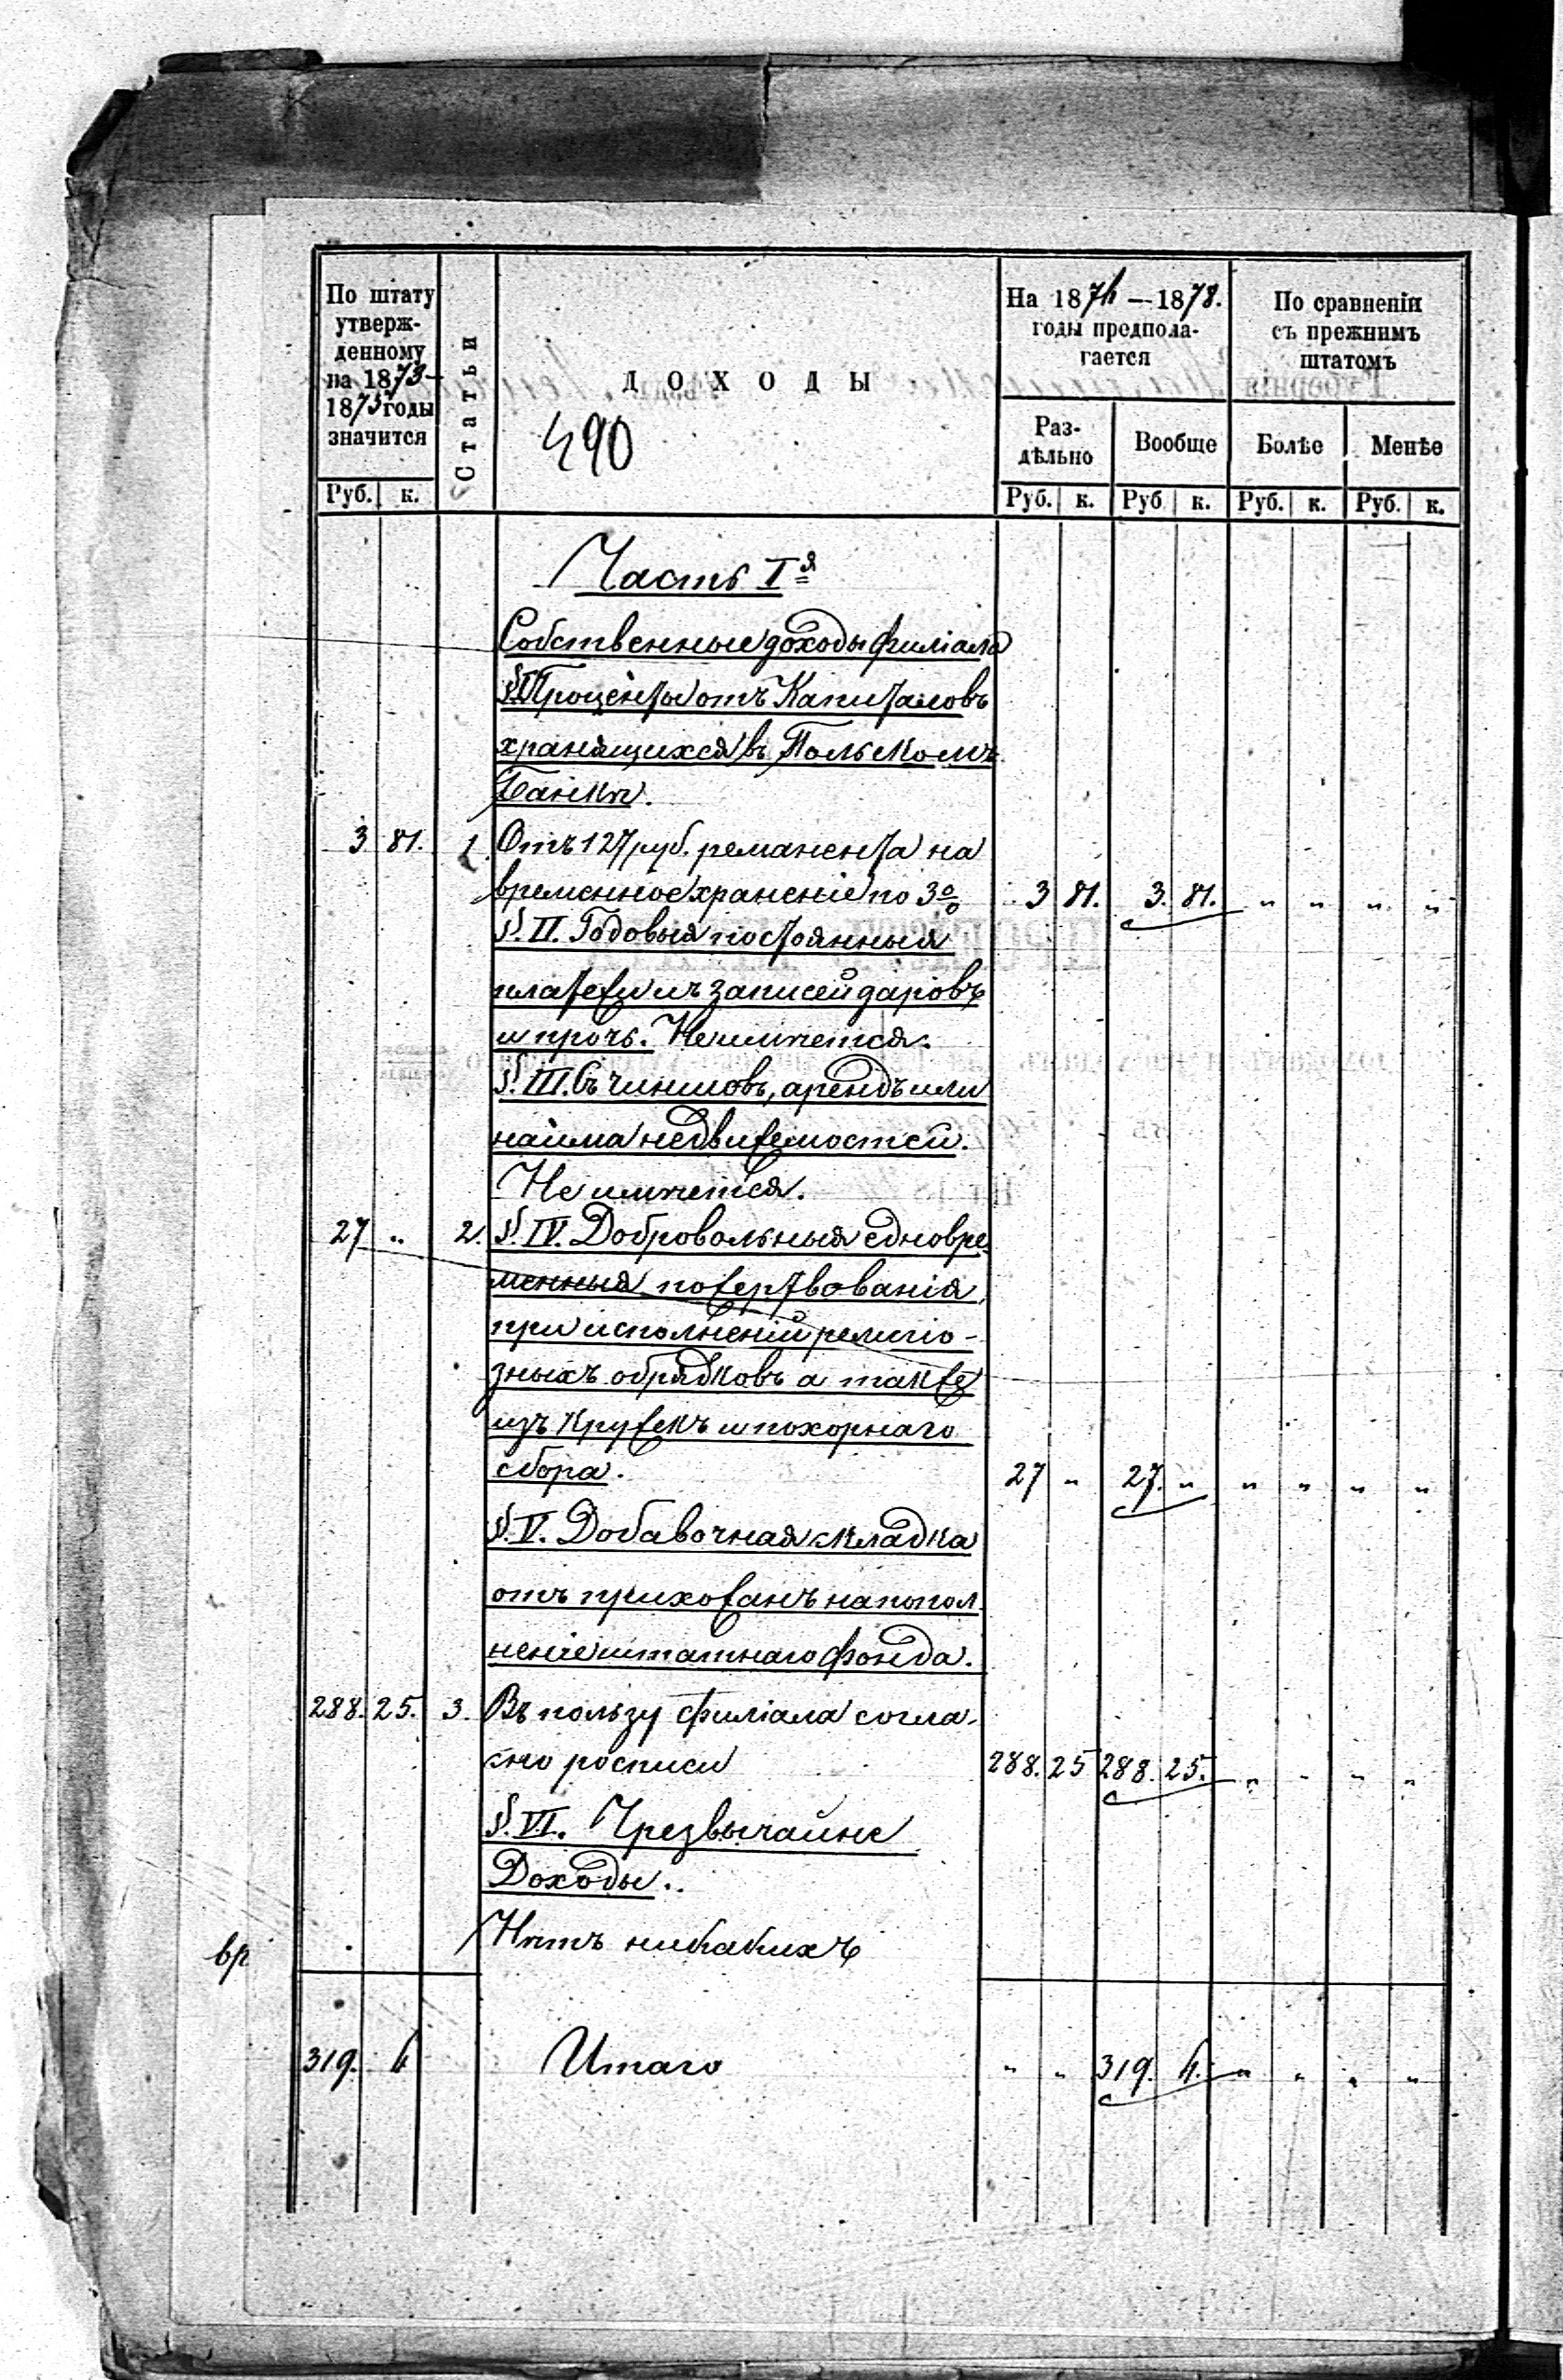 По штату
утверж-
денному
на 1873-
1875 годы
значится
Руб. к.
Статьи
ДОХОДЫ
490
На 1876 — 1878.
годы предпола-
гается
Раз-
дѣльно
Вообще
Руб. к. Руб к.
По сравненіи
съ прежнимъ
штатомъ
Болѣе Менѣе
Руб. к. Руб. к.
Часть I я
Собственные доходы филіала
§ I Проценты отъ Капиталовъ
хранящихся въ Польскомъ
Банкѣ.
3 81. 1. Отъ 127 руб. реманента на
временное храненіе по 3% 3 81. 3. 81. „ „ „ „
§. II. Годовыя постоянныя
платежи изъ записей даровъ
и проч. Не имѣется.
§. III. Съ чиншовъ, арендъ или
найма недвижимостей.
Не имѣется.
27 „ 2. §. IV. Добровольныя едновре-
менныя пожертвованія,
при исполненій религіо-
зныхъ обрядковъ а также
изъ кружекъ и похорнаго
сбора. 27 „ 27. „ „ „ „ „
§. V. Добавочная складка
отъ прихожанъ на попол-
неніе штатнаго фонда.
288. 25. 3. Въ пользу филіала согла-
сно росписи 288. 25 288. 25. „ „ „ „
§. VI. Чрезвычайне
Доходы..
Нѣтъ никакихъ
вр
319. 6 Итаго „ „ 319. 6. „ „ „ „